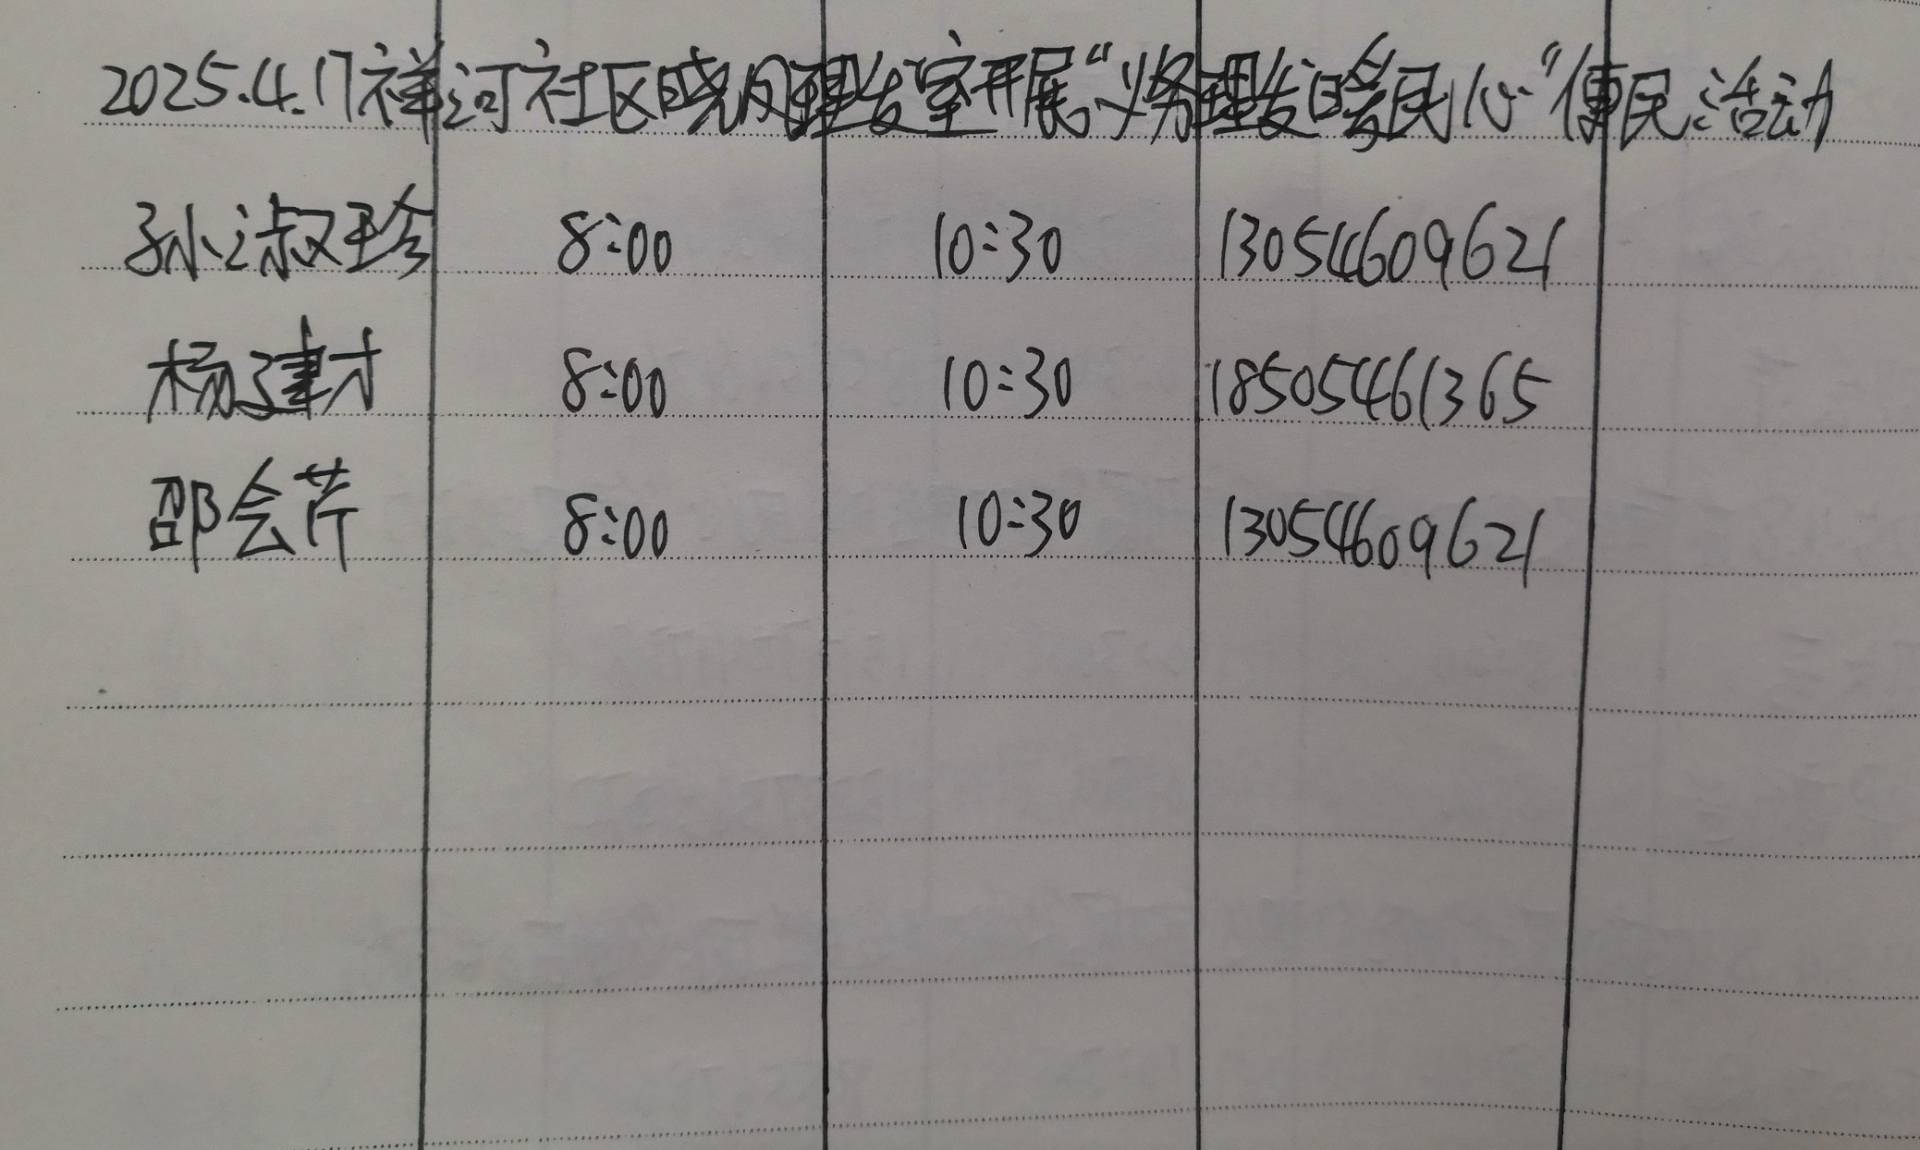 2025.4.17祥河社区晓月理发室开展“义务理发暖民心”便民活动
孙淑珍 8:00 10:30 13054609621
杨建才 8:00 10:30 18505461365
邵会芹 8:00 10:30 13054609621